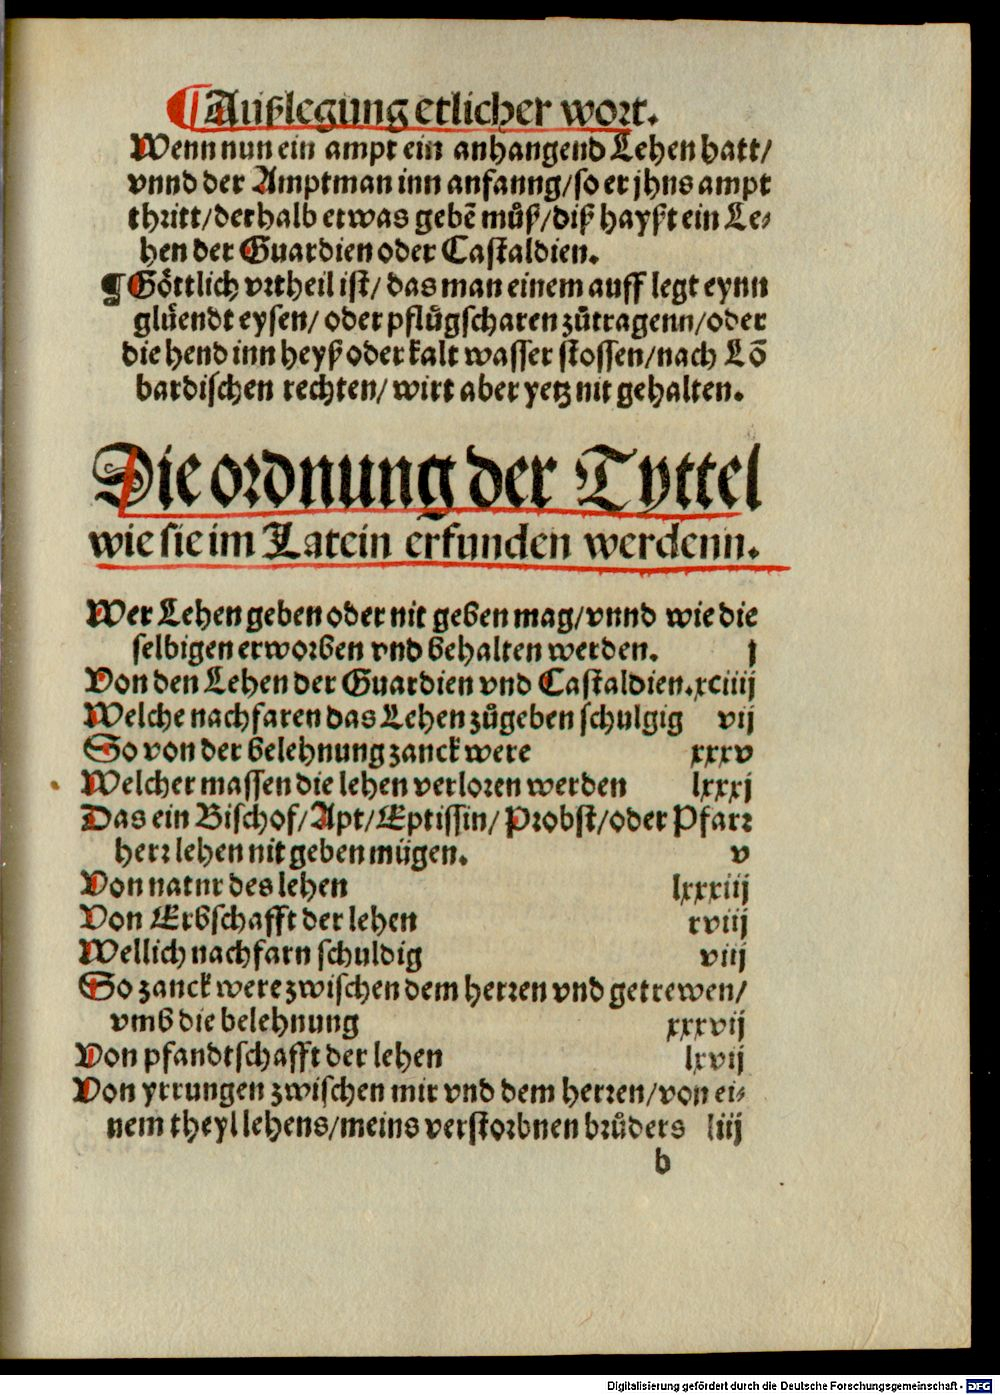 ¶ Außlegung etlicher wort.
Wenn nun ein ampt ein anhangend Lehen hatt/
vnnd der Amptman inn anfanng/so er jhns ampt
thritt/derhalb etwas gebē můß/diß hayst ein Le-
hen der Guardien oder Castaldien.
¶ Göttlich vrtheil ist/ das man einem auff legt eynn
glüendt eysen/ oder pflůgscharen zůtragenn/oder
die hend inn heyß oder kalt wasser stossen/nach Lō
bardischen rechten/ wirt aber yetz nit gehalten.
Die ordnung der Tyttel
wie sie im Latein erfunden werdenn.
Wer Lehen geben oder nit geben mag/vnnd wie die
selbigen erworben vnd behalten werden. j
Von den Lehen der Guardien vnd Castaldien. xciiij
Welche nachfaren das Lehen zůgeben schulgig vij
So von der belehnung zanck were xxxv
Welcher massen die lehen verloren werden lxxxj
Das ein Bischof/Apt/Eptissin/ Probst/oder Pfarr
herr lehen nit geben mügen. v
Von natur des lehen lxxxiij
Von Erbschafft der lehen xviij
Wellich nachfarn schuldig viij
So zanck were zwischen dem herren vnd getrewen/
vmb die belehnung xxxvij
Von pfandtschafft der lehen lxvij
Von yrrungen zwischen mir vnd dem herren/von ei-
nem theyl lehens/meins verstorbnen brůders liij
b
Digitalisierung gefördert durch die Deutsche Forschungsgemeinschaft - DFG